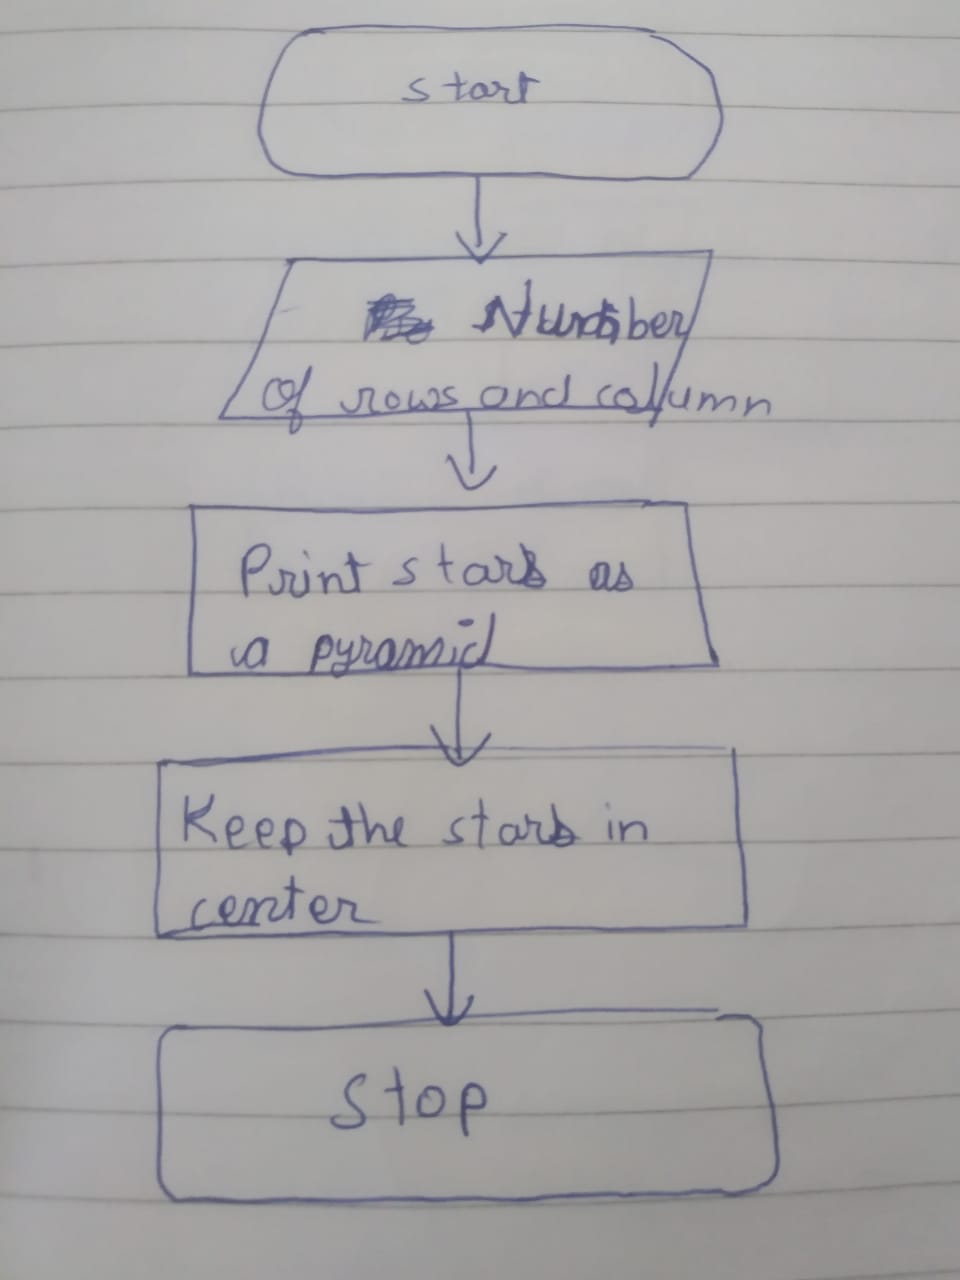 start
Number
Of rows and column
Print stars as
a pyramid
Keep the stars in
center
Stop